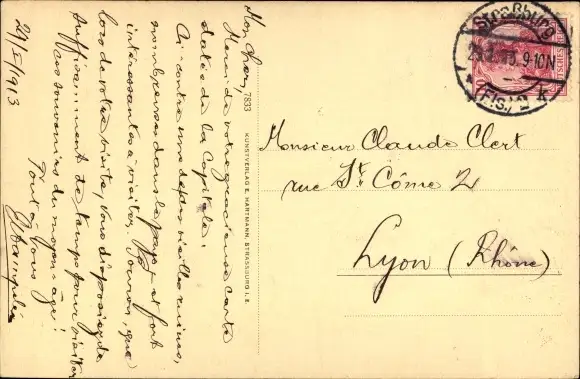 Mon cher,
Merci de votre gracieuse carte
datée de la Capitale.
Ci-contre une des vieilles ruines,
nombreuses dans le pays et fort
intéressantes à visiter. Pourvu que
lors de votre visite, vous disposiez de
suffisamment de temps pour visiter
ces souvenirs du moyen-âge!
Tout à vous
21/I/1913
7833
KUNSTVERLAG E. HARTMANN, STRASSBURG i. E.
Straßburg
9-10N
(Els.) 2
k
Monsieur Claude Clert
rue St. Côme 2
Lyon (Rhône)